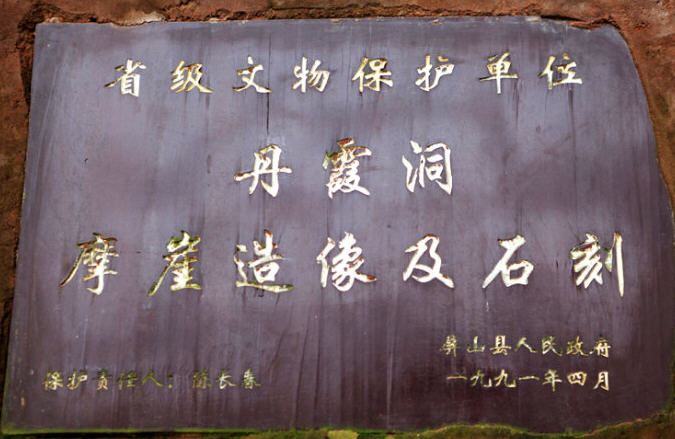 省级文物保护单位
丹霞洞
摩崖造像及石刻
屏山县人民政府
保护责任人：陈长春
一九九一年四月